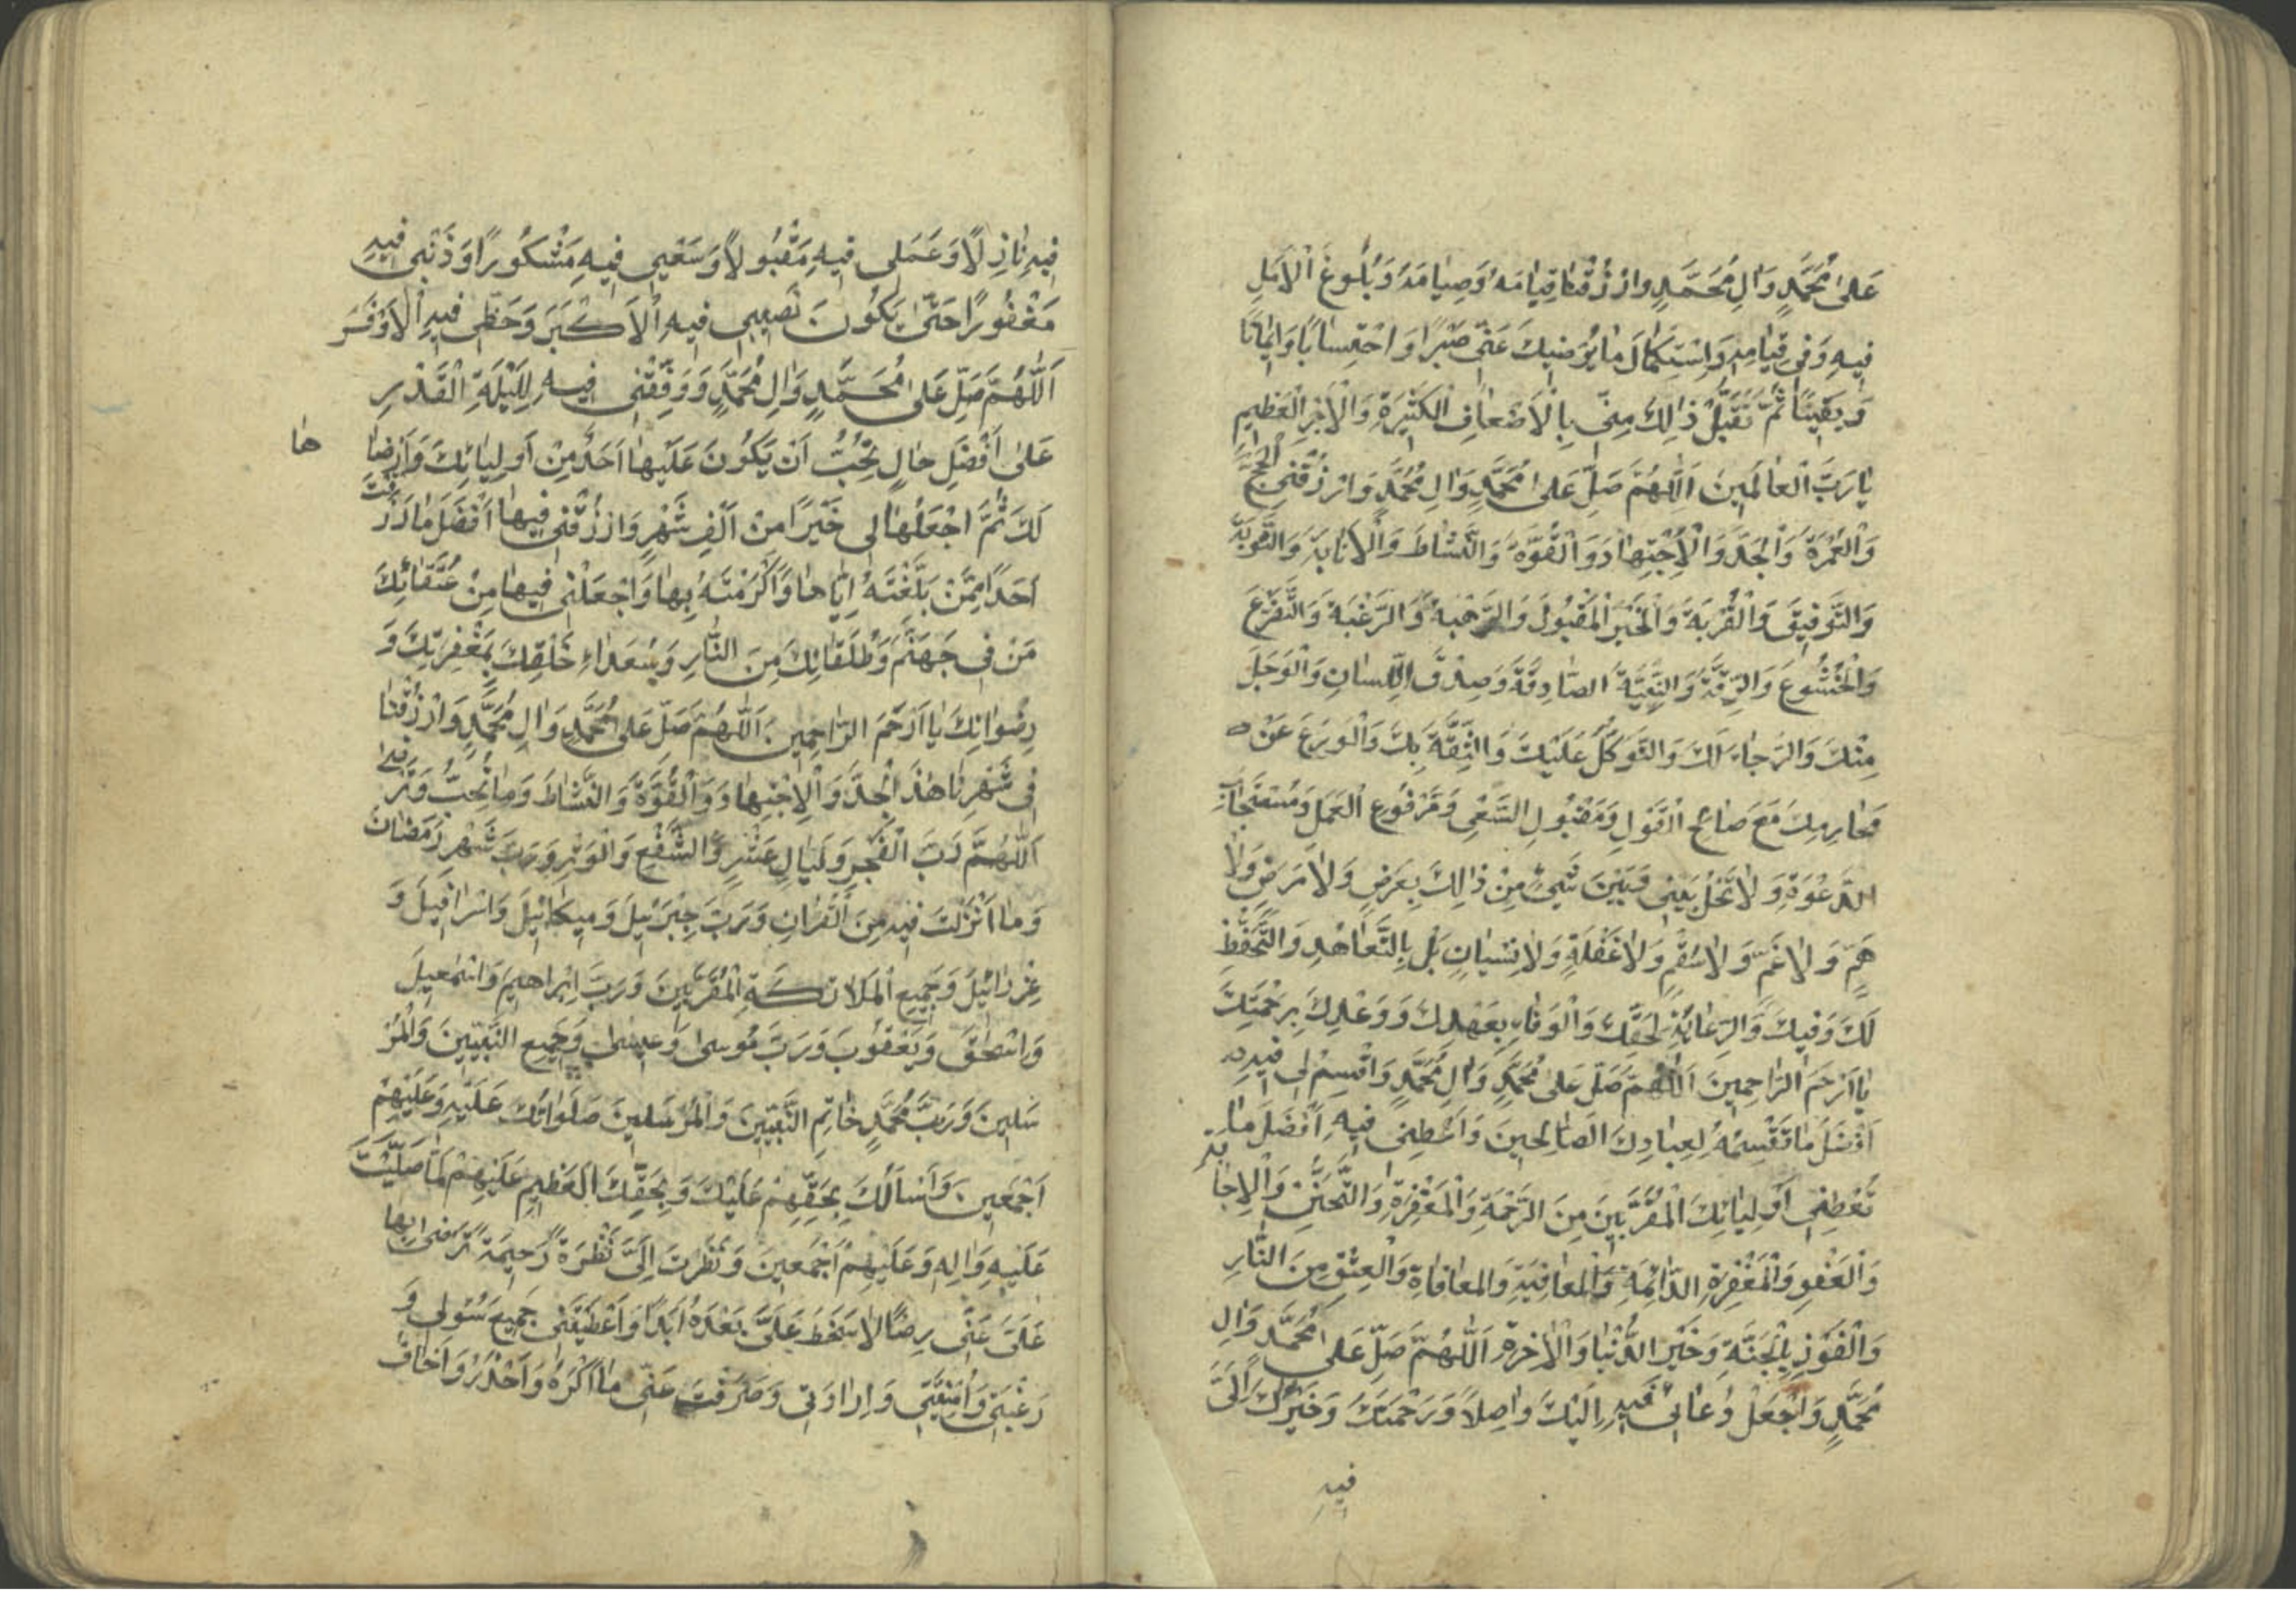 عَلىٰ مُحَمَّدٍ وَاٰلِ مُحَمَّدٍ وارْزُقْنٰا قِيٰامَهُ وَصِيٰامَهُ وَبُلُوغَ الْاَمَلِ
فِيهِ وَفي قِيٰامِهِ وَاسْتِكْمٰالَ مٰا يُرْضيكَ عَنّي صَبْرًا وَاحْتِسٰابًا وَايمٰانًا
وَيَقينًا ثُمَّ تَقَبَّلْ ذٰلِكَ مِنّي بِالْاَضْعٰافِ الْكَثيرَةِ وَالْاَجْرِ الْعَظيمِ
يٰا رَبَّ الْعٰالَمينَ اَللّٰهُمَّ صَلِّ عَلىٰ مُحَمَّدٍ وَاٰلِ مُحَمَّدٍ وَارْزُقْنِي الْحَجَّ
وَالْعُمْرَةَ وَالْجَدَّ وَالْاِجْتِهٰادَ وَالْقُوَّةَ وَالنَّشٰاطَ وَالْاِنٰابَةَ وَالتَّوْبَةَ
وَالتَّوْفيقَ وَالْقُرْبَةَ وَالْخَيْرَ الْمَقْبُولَ وَالرَّهْبَةَ وَالرَّغْبَةَ وَالتَّضَرُّعَ
وَالْخُشُوعَ وَالرِّقَّةَ وَالنِّيَّةَ الصّٰادِقَةَ وَصِدْقَ اللِّسٰانِ وَالْوَجَلَ
مِنْكَ وَالرَّجٰاءَ لَكَ وَالتَّوَكُّلَ عَلَيْكَ وَالثِّقَةَ بِكَ وَالْوَرَعَ عَنْ
مَحٰارِمِكَ مَعَ صٰالِحِ الْقَوْلِ وَمَقْبُولِ السَّعْيِ وَمَرْفُوعِ الْعَمَلِ وَمُسْتَجٰابِ
الدَّعْوَةِ وَلٰا تَحُلْ بَيْني وَبَيْنَ شَيْءٍ مِنْ ذٰلِكَ بِعَرَضٍ وَلٰا مَرَضٍ وَلٰا
هَمٍّ وَلٰا غَمٍّ وَلٰا سُقْمٍ وَلٰا غَفْلَةٍ وَلٰا نِسْيٰانٍ بَلْ بِالتَّعٰاهُدِ وَالتَّحَفُّظِ
لَكَ وَفيكَ وَالرِّعٰايَةِ لِحَقِّكَ وَالْوَفٰاءِ بِعَهْدِكَ وَوَعْدِكَ بِرَحْمَتِكَ
يٰا اَرْحَمَ الرّٰاحِمينَ اَللّٰهُمَّ صَلِّ عَلىٰ مُحَمَّدٍ وَاٰلِ مُحَمَّدٍ وَاقْسِمْ لي فيهِ
اَفْضَلَ مٰا تَقْسِمُهُ لِعِبٰادِكَ الصّٰالِحينَ وَاَعْطِني فيهِ اَفْضَلَ مٰا
تُعْطِي اَوْلِيٰائِكَ الْمُقَرَّبينَ مِنَ الرَّحْمَةِ وَالْمَغْفِرَةِ وَالتَّحَنُّنِ وَالْاِجٰابَةِ
وَالْعَفْوِ وَالْمَغْفِرَةِ الدّٰائِمَةِ وَالْعٰافِيَةِ وَالمعٰافٰاةِ وَالْعِتْقِ مِنَ النّٰارِ
وَالْفَوْزِ بِالْجَنَّةِ وَخَيْرِ الدُّنْيٰا وَالْاٰخِرَةِ اَللّٰهُمَّ صَلِّ عَلىٰ مُحَمَّدٍ وَاٰلِ
مُحَمَّدٍ وَاجْعَلْ دُعٰائي فيهِ اِلَيْكَ وٰاصِلًا وَرَحْمَتَكَ وَخَيْرَكَ اِلَيَّ
فيهِ
فيهِ نٰازِلًا وَعَمَلي فيهِ مَقْبُولًا وَسَعْيي فيهِ مَشْكُورًا وَذَنْبي فيهِ
مَغْفُورًا حَتّىٰ يَكُونَ نَصيبي فيهِ الْاَكْبَرَ وَحَظّي فيهِ الْاَوْفَرَ
اَللّٰهُمَّ صَلِّ عَلىٰ مُحَمَّدٍ وَاٰلِ مُحَمَّدٍ وَوَفِّقْني فيهِ لِلَيْلَةِ الْقَدْرِ
عَلىٰ اَفْضَلِ حٰالٍ تُحِبُّ اَنْ يَكُونَ عَلَيْهٰا اَحَدٌ مِنْ اَوْلِيٰائِكَ وَاَرْضٰا هٰا
لَكَ ثُمَّ اجْعَلْهٰا لي خَيْرًا مِنْ اَلْفِ شَهْرٍ وَارْزُقْني فيهٰا اَفْضَلَ مٰا رَزَقْتَ
اَحَدًا مِمَّنْ بَلَّغْتَهُ اِيّٰاهٰا وَاَكْرَمْتَهُ بِهٰا وَاجْعَلْني فيهٰا مِنْ عُتَقٰائِكَ
مَنْ في جَهَنَّمَ وَطُلَقٰائِكَ مِنَ النّٰارِ وَسُعَدٰاءِ خَلْقِكَ بِمَغْفِرَتِكَ وَ
رِضْوٰانِكَ يٰا اَرْحَمَ الرّٰاحِمينَ اَللّٰهُمَّ صَلِّ عَلىٰ مُحَمَّدٍ وَاٰلِ مُحَمَّدٍ وَارْزُقْنٰا
في شَهْرِنٰا هٰذَا الْجَدَّ وَالْاِجْتِهٰادَ وَالْقُوَّةَ وَالنَّشٰاطَ وَمٰا تُحِبُّ وَتَرْضٰى
اَللّٰهُمَّ رَبَّ الْفَجْرِ وَلَيٰالٍ عَشْرٍ وَالشَّفْعِ وَالْوَتْرِ وَرَبَّ شَهْرِ رَمَضٰانَ
وَمٰا اَنْزَلْتَ فيهِ مِنَ الْقُرْاٰنِ وَرَبَّ جِبْرَئيلَ وَميكٰائيلَ وَاِسْرٰافيلَ وَ
عِزْرٰائيلَ وَجَميعِ الْمَلٰائِكَةِ الْمُقَرَّبينَ وَرَبَّ اِبْرٰاهيمَ وَاِسْمٰعيلَ
وَاِسْحٰقَ وَيَعْقُوبَ وَرَبَّ مُوسىٰ وَعيسىٰ وَجَميعِ النَّبِيّينَ وَالْمُرْ
سَلينَ وَرَبَّ مُحَمَّدٍ خٰاتِمِ النَّبِيّينَ وَالْمُرْسَلينَ صَلَوٰاتُكَ عَلَيْهِ وَعَلَيْهِمْ
اَجْمَعينَ وَاَسْاَلُكَ بِحَقِّهِمْ عَلَيْكَ وَبِحَقِّكَ الْعَظيمِ عَلَيْهِمْ لَمّٰا صَلَّيْتَ
عَلَيْهِ وَاٰلِهِ وَعَلَيْهِمْ اَجْمَعينَ وَنَظَرْتَ اِلَيَّ نَظْرَةً رَحيمَةً تَرْضىٰ بِهٰا
عَلَيَّ عَنّي رِضًا لٰا سَخَطَ عَلَيَّ بَعْدَهُ اَبَدًا وَاَعْطَيْتَني جَميعَ سُؤْلي وَ
رَغْبَتي وَاُمْنِيَّتي وَاِرٰادَتي وَصَرَفْتَ عَنّي مٰا اَكْرَهُ وَاَحْذَرُ وَاَخٰافُ